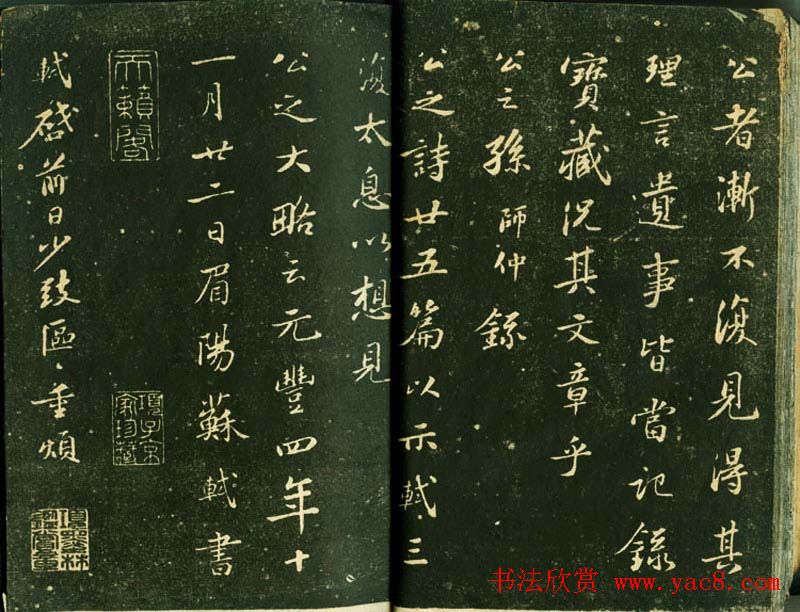 公者漸不復見得其
理言遺事皆當記錄
寶藏況其文章乎
公之孫師仲錄
公之詩廿五篇以示軾三
復太息以想見
公之大略云元豐四年十
一月廿二日眉陽蘇軾書
天籟閣
項子京家珍藏
軾啓前日少致區〻重煩
書法欣赏 www.yac8.com